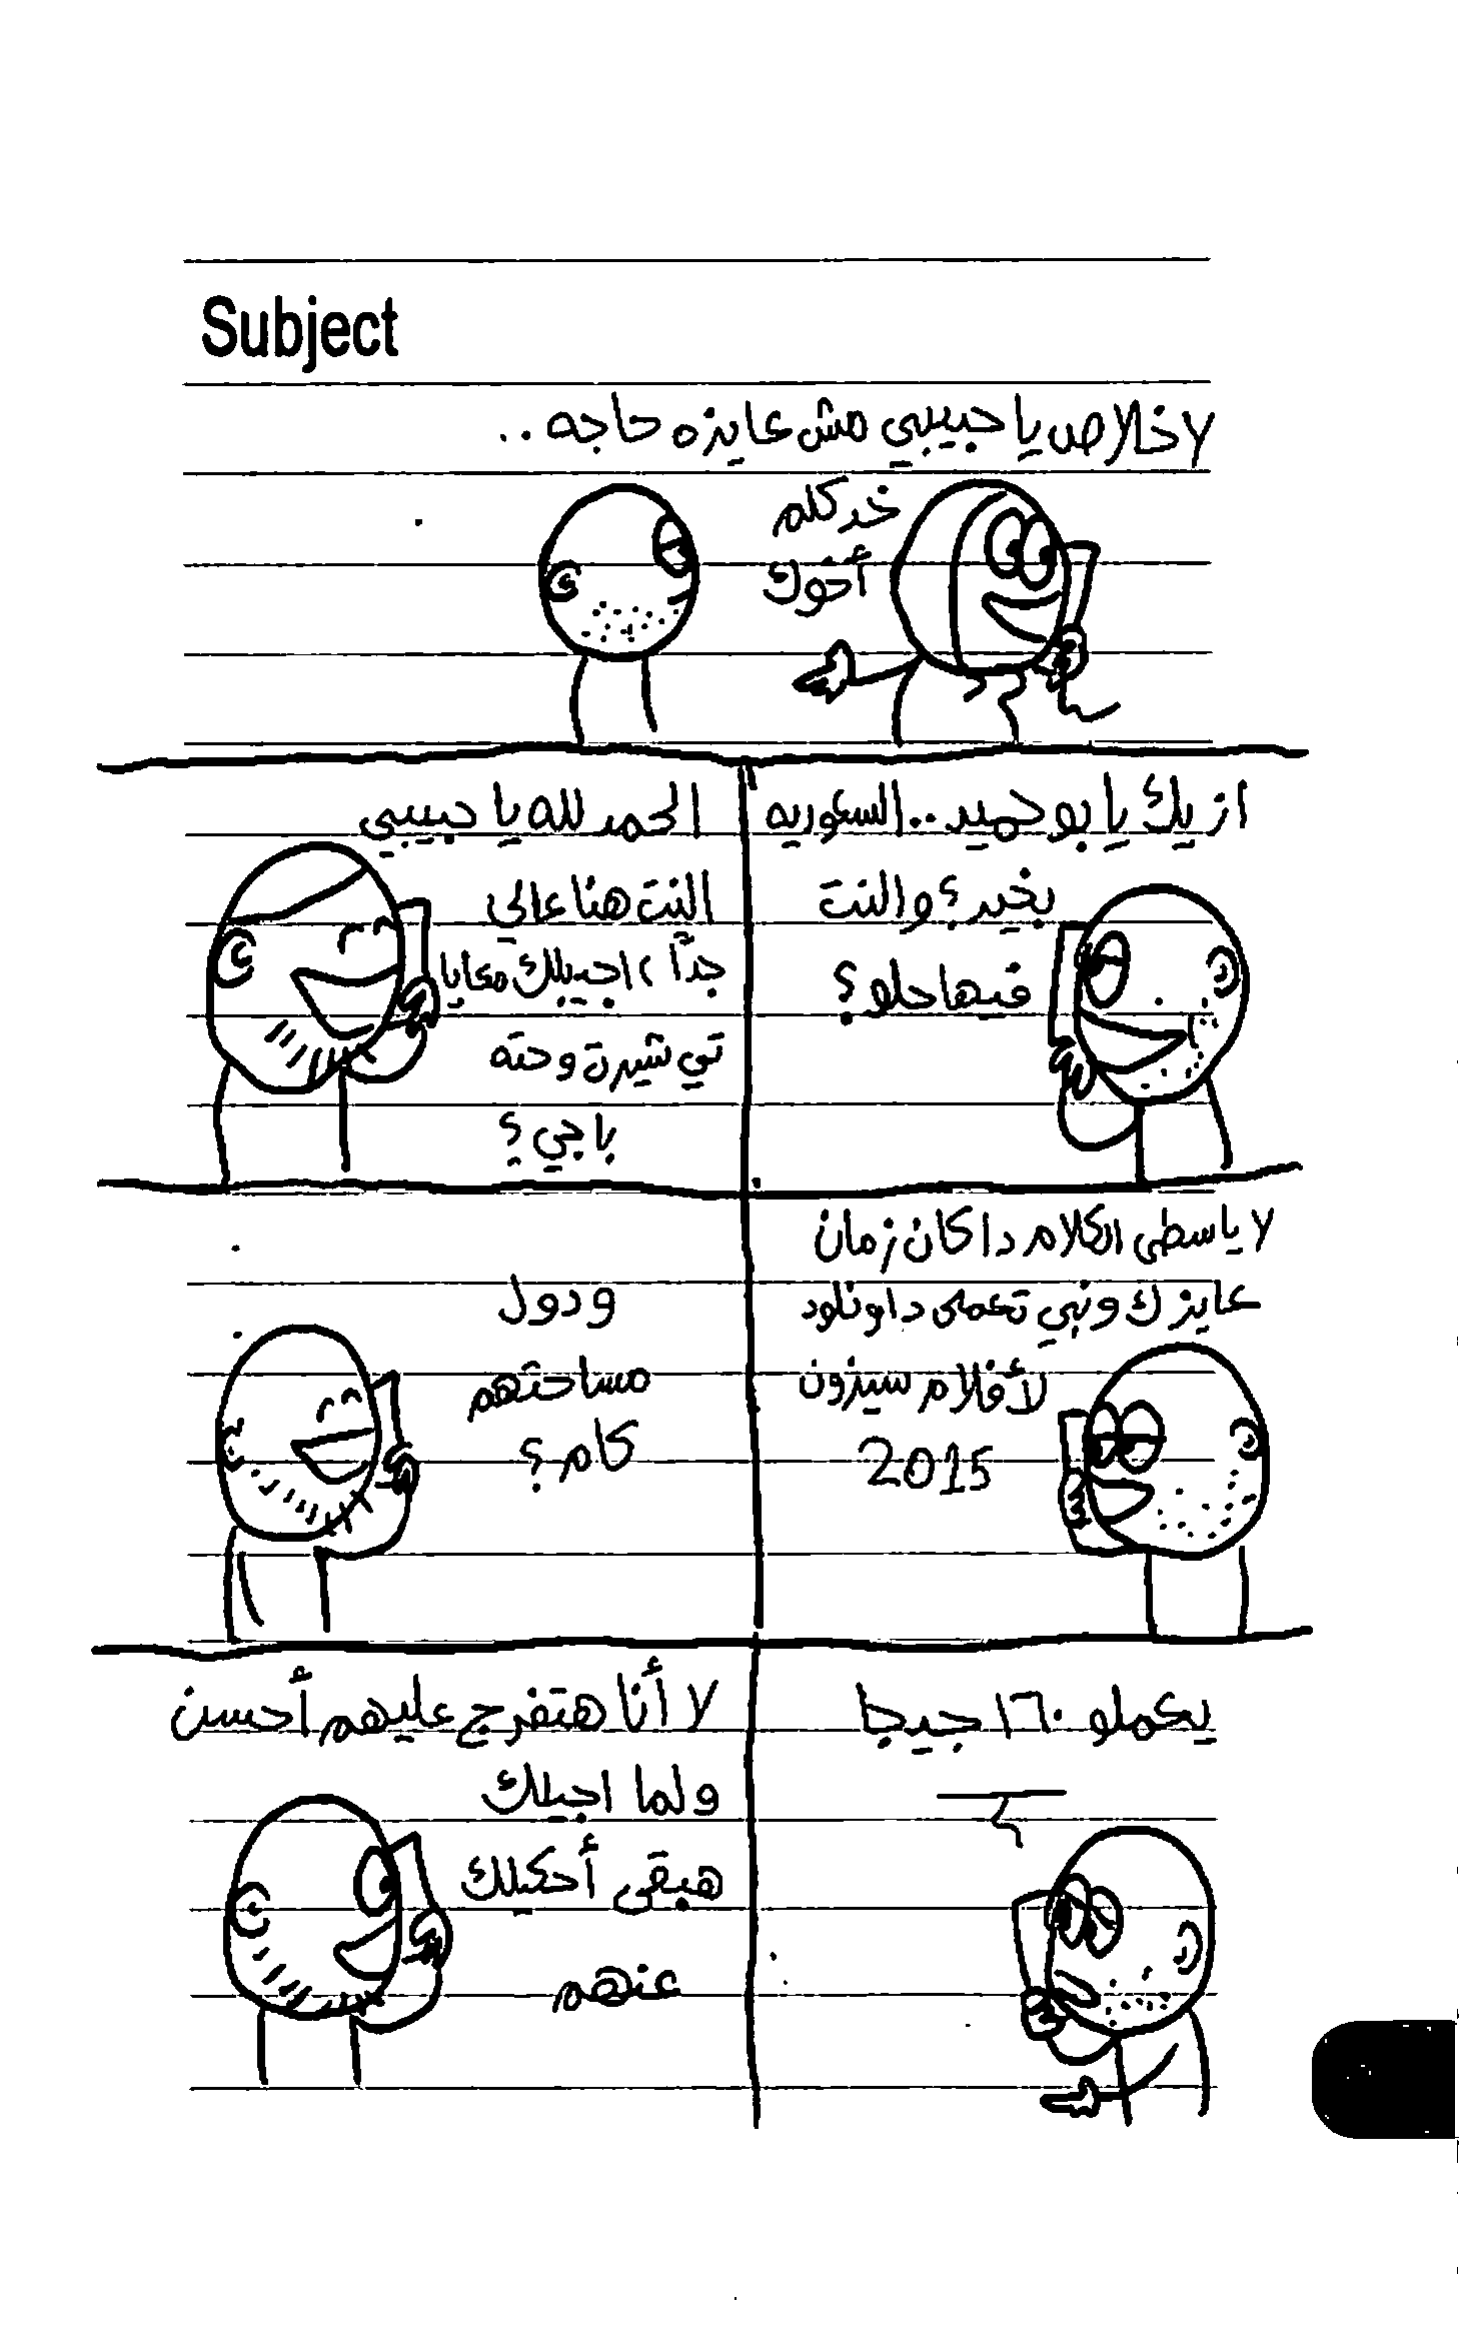 Subject
لا خلاص يا حبيبي مش عايزه حاجه..
خد كلم
أخوك
ازيك يا بو حميد.. السعوديه
بخير؟ والنت
فيها حلو؟
الحمد لله يا حبيبي
النت هنا عالي
جداً، اجيبلك معايا
تي شيرت وحته
باجي؟
لا ياسطى الكلام دا كان زمان
عايزك ونبي تعملى داونلود
لأفلام سيزون
2015
ودول
مساحتهم
كام؟
يكملو ١٦٠ جيجا
لا أنا هتفرج عليهم أحسن
ولما اجيلك
هبقى أحكيلك
عنهم